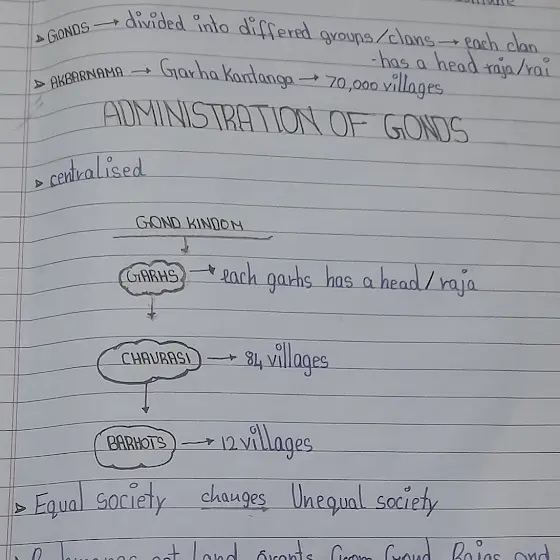 ▷ GONDS → divided into differed groups/clans → each clan
- has a head raja/rai
▷ AKBARNAMA → Garha Kantanga → 70,000 villages
ADMINISTRATION OF GONDS
▷ centralised
GOND KINDOM
↓
GARHS → each garhs has a head/raja
↓
CHAURASI → 84 villages
↓
BARHOTS → 12 villages
▷ Equal society changes Unequal society
got Land grants from Gond Rajas and